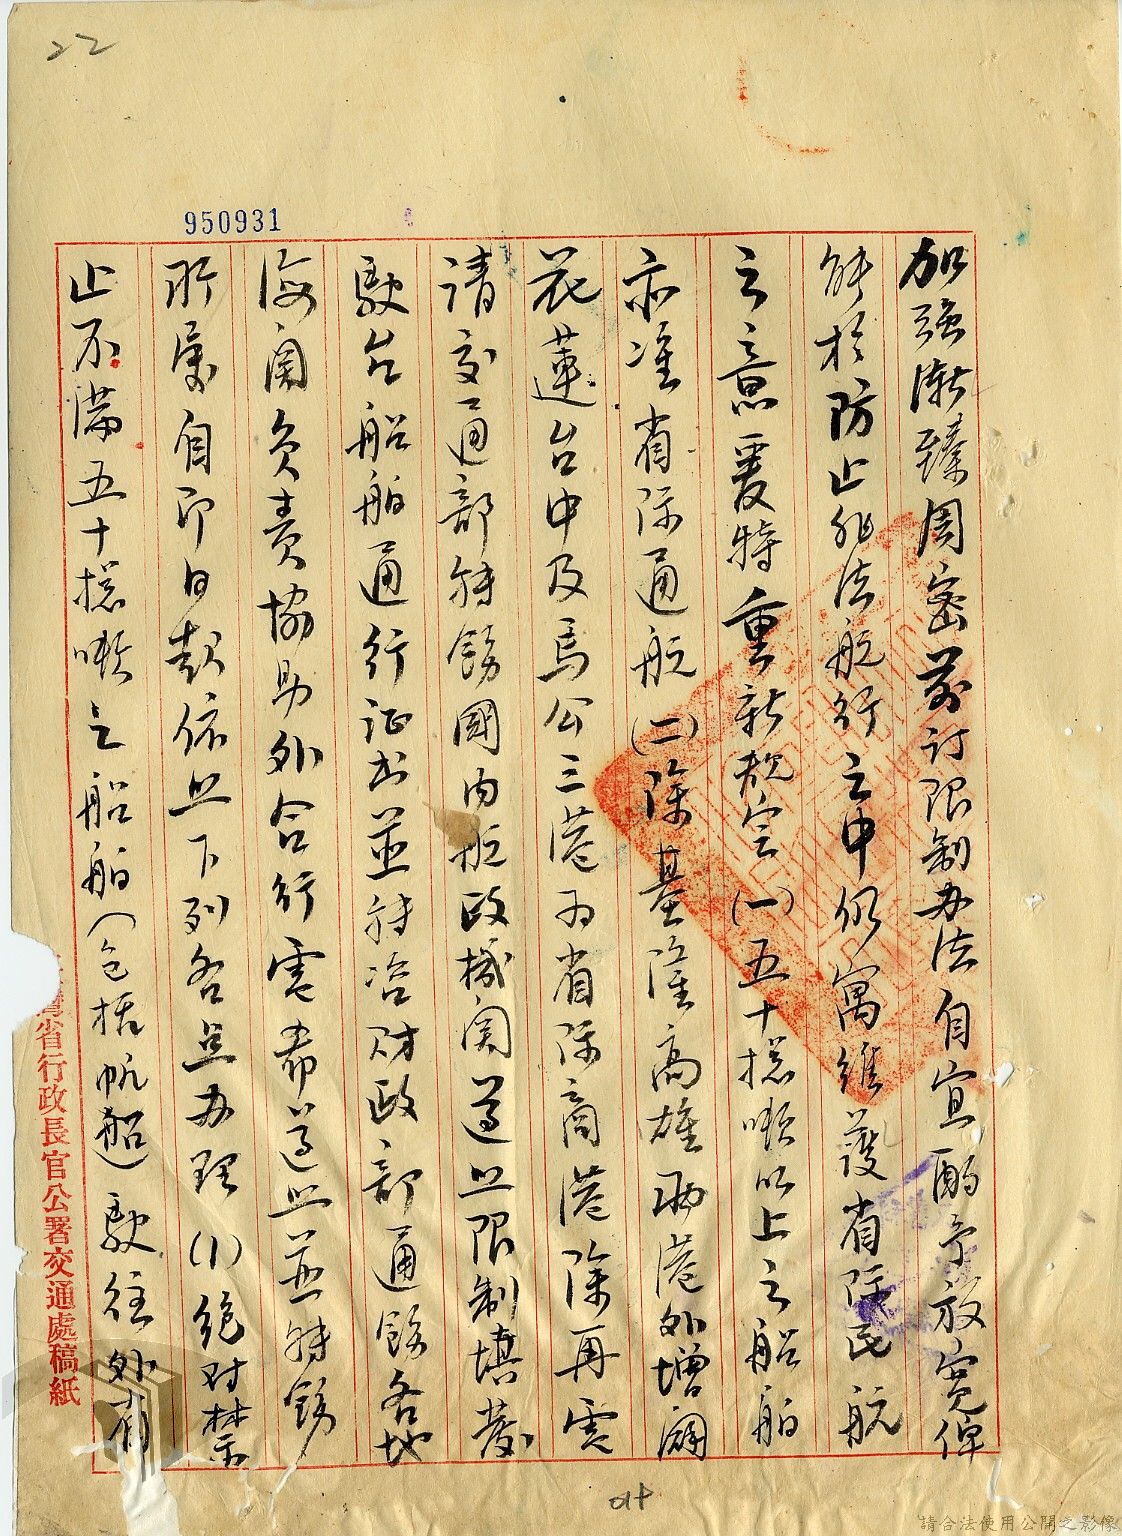 22
950931
加強漸臻周密前訂限制办法自宜酌予放寬俾
能於防止非法航行之中仍寓維護省际民航
之意爰特重新規定(一)五十總噸以上之船舶
亦准省际通航(二)除基隆高雄兩港外增闢
花蓮台中及馬公三港为省际商港除再電
請交通部转飭國内航政機関遵照限制填發
駛台船舶通行证书並转洽财政部通飭各地
海関负责協助外合行電希遵照並转飭
所属自即日起依照下列各点办理(1)绝对禁
止不满五十總噸之船舶(包括帆船)駛往外省
灣省行政長官公署交通處稿紙
請合法使用公開之影像